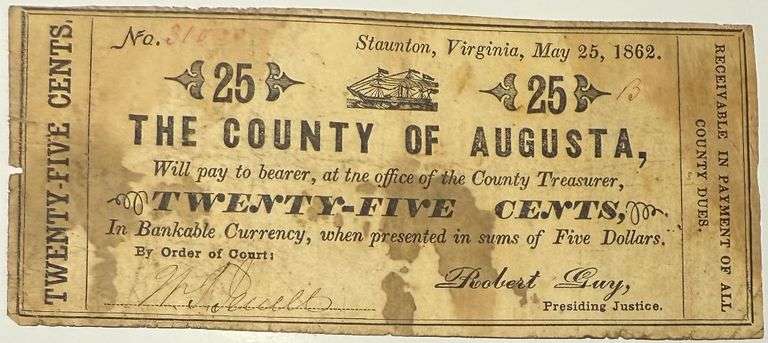 TWENTY-FIVE CENTS.
No.
Staunton, Virginia, May 25, 1862.
25 25 13
THE COUNTY OF AUGUSTA,
Will pay to bearer, at tne office of the County Treasurer,
TWENTY-FIVE CENTS,
In Bankable Currency, when presented in sums of Five Dollars.
By Order of Court:
Robert Guy,
Presiding Justice.
RECEIVABLE IN PAYMENT OF ALL
COUNTY DUES.